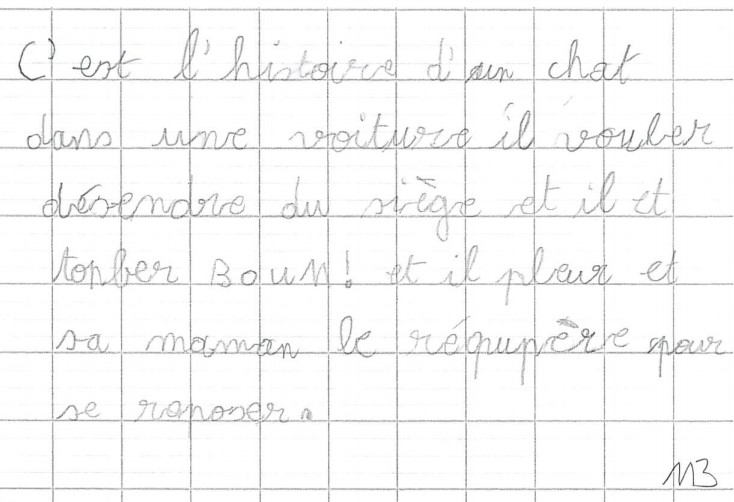 C'est l'histoire d'un chat
dans une voiture il vouler
désendre du siège et il et
tonber BOUM! et il pleur et
sa maman le réqupère pour
se raposer.
113